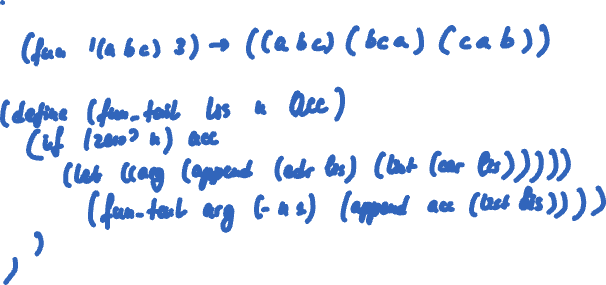 (fun '(a b c) 3) → ((a b c) (b c a) (c a b))
(define (fun-tail lis n acc)
(if (zero? n) acc
(let ((arg (append (cdr lis) (list (car lis)))))
(fun-tail arg (- n 1) (append acc (list lis))))
)
)